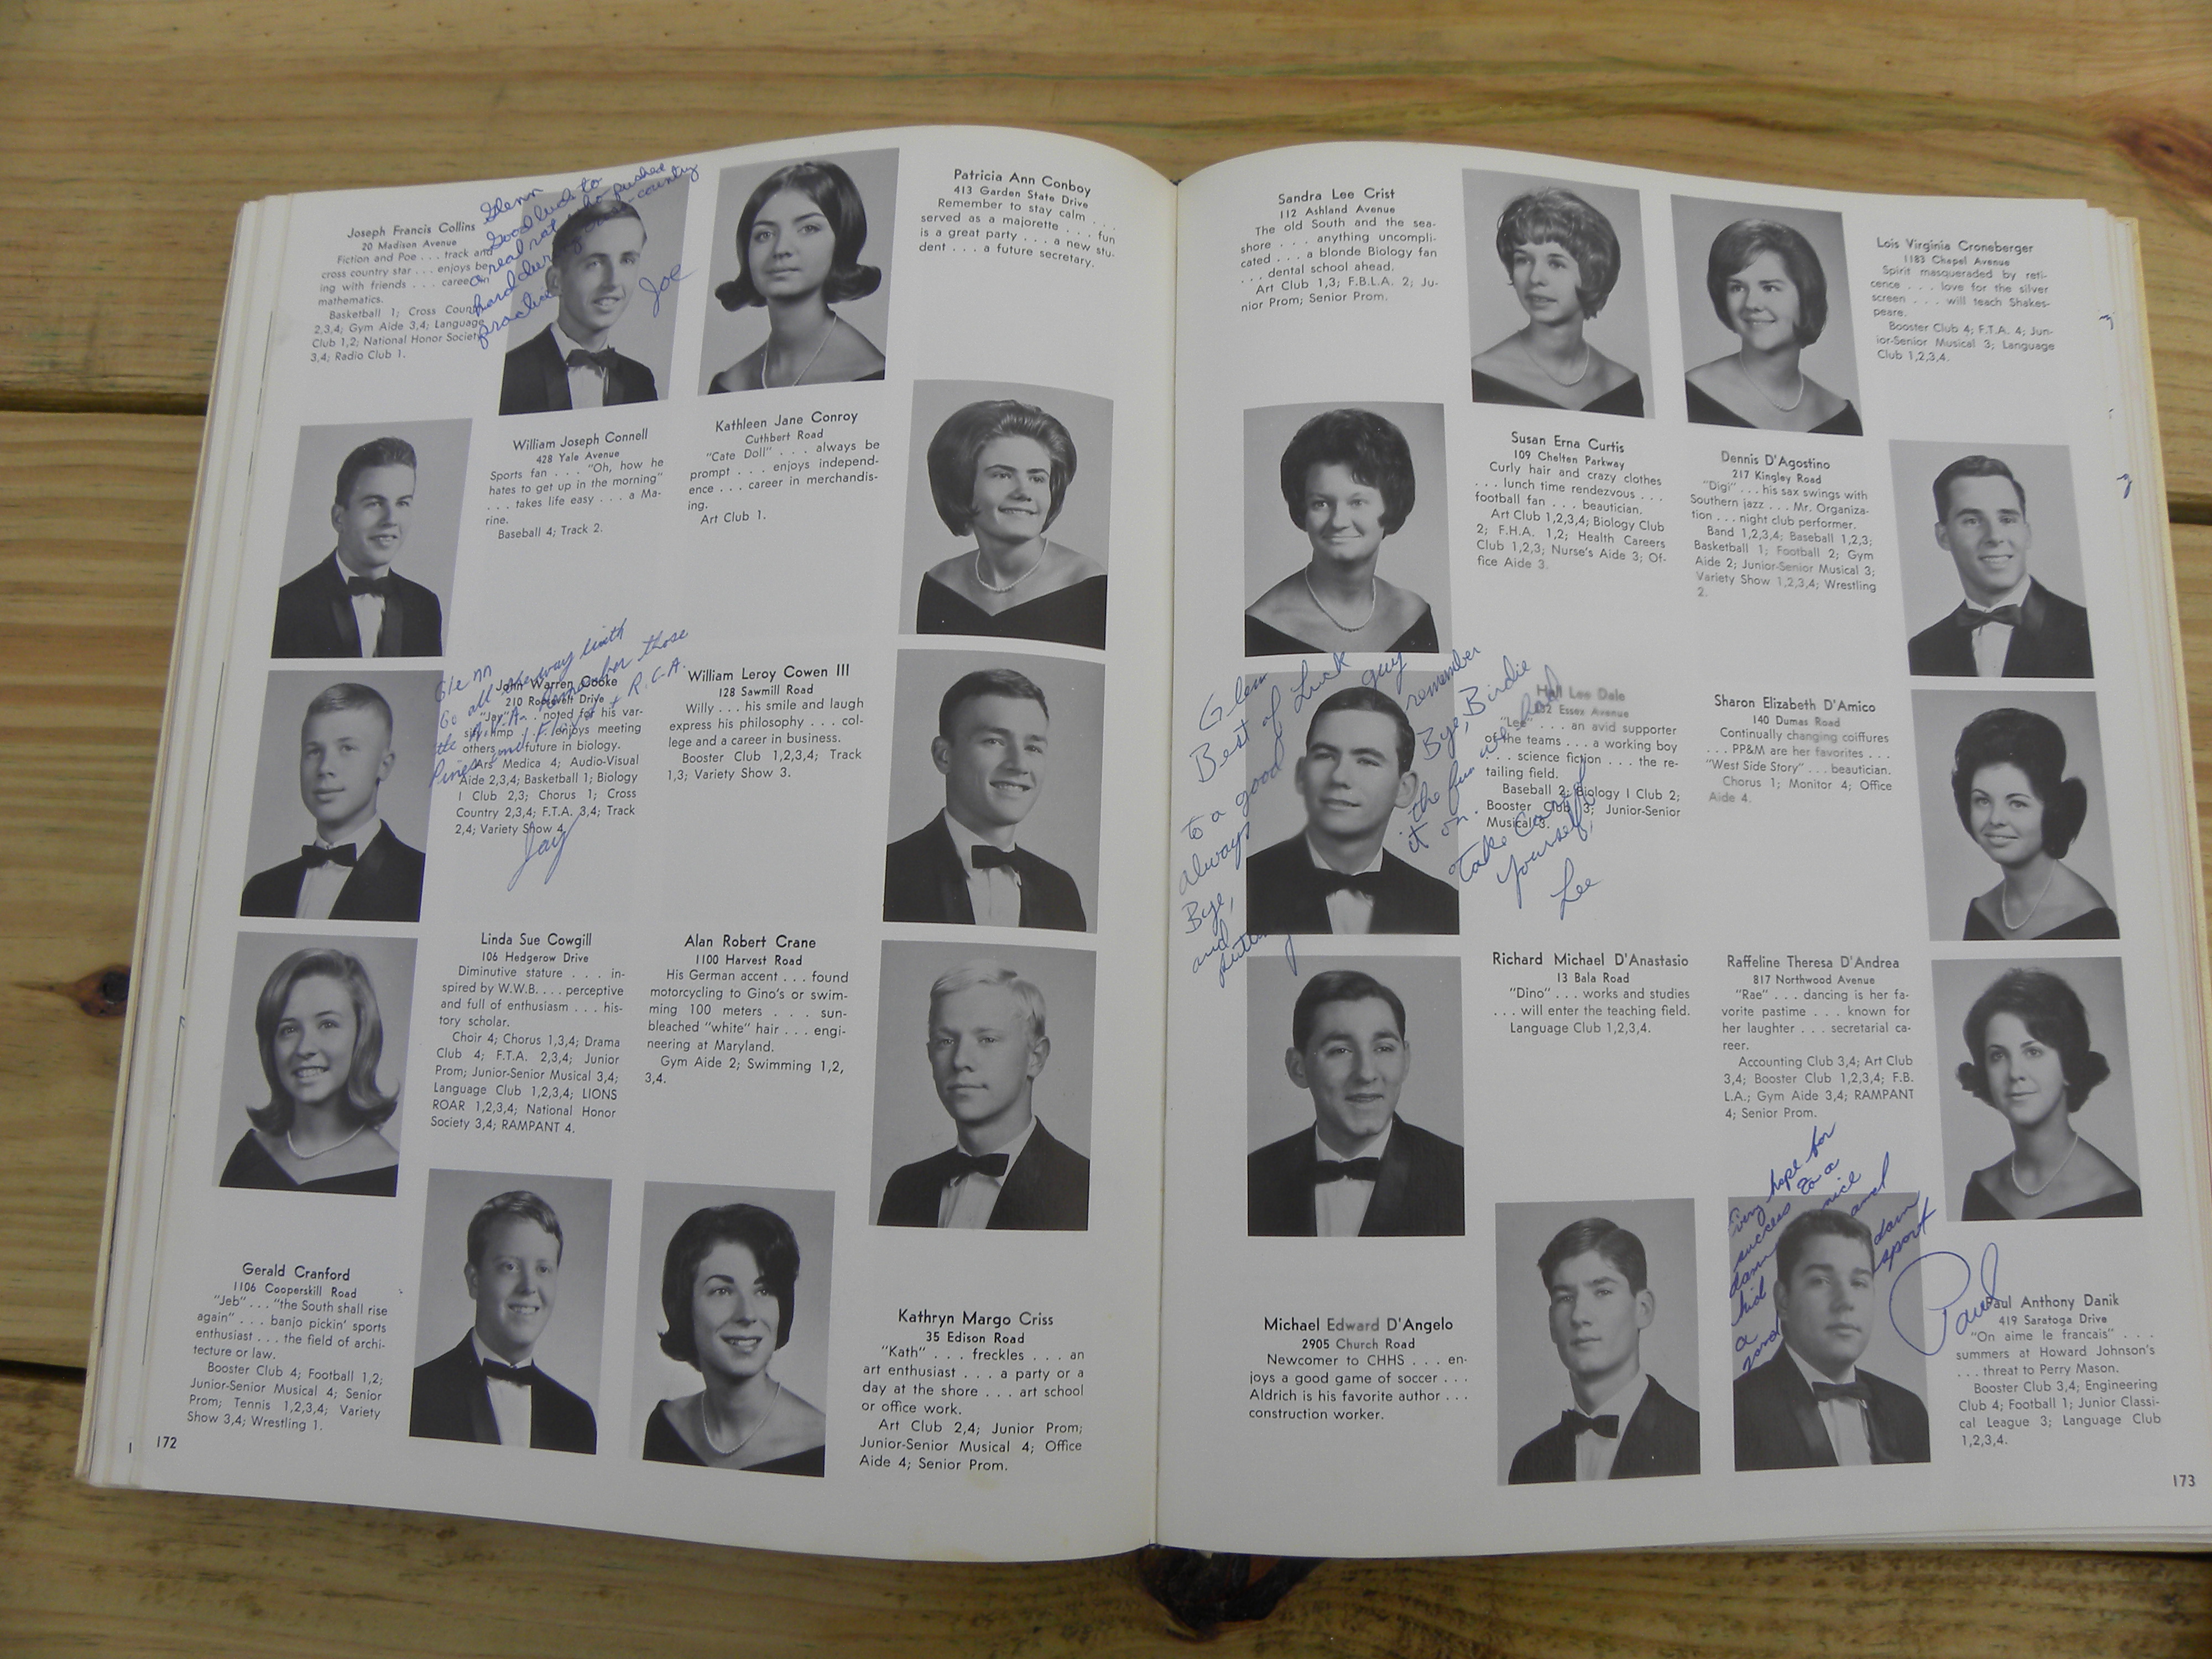 Joseph Francis Collins
20 Madison Avenue
Fiction and Poe . . . track and
cross country star . . . enjoys be-
ing with friends . . . career in
mathematics.
Basketball 1; Cross Country
2,3,4; Gym Aide 3,4; Language
Club 1,2; National Honor Society
3,4; Radio Club 1.
Glenn
Good luck to
a real rat who pushed
hard during cross-country
practice
Joe
Patricia Ann Conboy
413 Garden State Drive
Remember to stay calm . . .
served as a majorette . . . fun
is a great party . . . a new stu-
dent . . . a future secretary.
William Joseph Connell
428 Yale Avenue
Sports fan . . . "Oh, how he
hates to get up in the morning"
. . . takes life easy . . . a Ma-
rine.
Baseball 4; Track 2.
Kathleen Jane Conroy
Cuthbert Road
"Cate Doll" . . . always be
prompt . . . enjoys independ-
ence . . . career in merchandis-
ing.
Art Club 1.
Glenn
Go all the way with
the Remember those
R.C.A.
John Warren Cooke
210 Roosevelt Drive
"Jay" . . . noted for his var-
sity limp . . . enjoys meeting
others . . . future in biology.
Ars Medica 4; Audio-Visual
Aide 2,3,4; Basketball 1; Biology
I Club 2,3; Chorus 1; Cross
Country 2,3,4; F.T.A. 3,4; Track
2,4; Variety Show 4.
Jay
William Leroy Cowen III
128 Sawmill Road
Willy . . . his smile and laugh
express his philosophy . . . col-
lege and a career in business.
Booster Club 1,2,3,4; Track
1,3; Variety Show 3.
Linda Sue Cowgill
106 Hedgerow Drive
Diminutive stature . . . in-
spired by W.W.B. . . . perceptive
and full of enthusiasm . . . his-
tory scholar.
Choir 4; Chorus 1,3,4; Drama
Club 4; F.T.A. 2,3,4; Junior
Prom; Junior-Senior Musical 3,4;
Language Club 1,2,3,4; LIONS
ROAR 1,2,3,4; National Honor
Society 3,4; RAMPANT 4.
Alan Robert Crane
1100 Harvest Road
His German accent . . . found
motorcycling to Gino's or swim-
ming 100 meters . . . sun-
bleached "white" hair . . . engi-
neering at Maryland.
Gym Aide 2; Swimming 1,2,
3,4.
Gerald Cranford
1106 Cooperskill Road
"Jeb" . . . "the South shall rise
again" . . . banjo pickin' sports
enthusiast . . . the field of archi-
tecture or law.
Booster Club 4; Football 1,2;
Junior-Senior Musical 4; Senior
Prom; Tennis 1,2,3,4; Variety
Show 3,4; Wrestling 1.
Kathryn Margo Criss
35 Edison Road
"Kath" . . . freckles . . . an
art enthusiast . . . a party or a
day at the shore . . . art school
or office work.
Art Club 2,4; Junior Prom;
Junior-Senior Musical 4; Office
Aide 4; Senior Prom.
172
Sandra Lee Crist
112 Ashland Avenue
The old South and the sea-
shore . . . anything uncompli-
cated . . . a blonde Biology fan
. . . dental school ahead.
Art Club 1,3; F.B.L.A. 2; Ju-
nior Prom; Senior Prom.
Lois Virginia Croneberger
1183 Chapel Avenue
Spirit masqueraded by reti-
cence . . . love for the silver
screen . . . will teach Shakes-
peare.
Booster Club 4; F.T.A. 4; Jun-
ior-Senior Musical 3; Language
Club 1,2,3,4.
Susan Erna Curtis
109 Chelten Parkway
Curly hair and crazy clothes
. . . lunch time rendezvous . . .
football fan . . . beautician.
Art Club 1,2,3,4; Biology Club
2; F.H.A. 1,2; Health Careers
Club 1,2,3; Nurse's Aide 3; Of-
fice Aide 3.
Dennis D'Agostino
217 Kingley Road
"Digi" . . . his sax swings with
Southern jazz . . . Mr. Organiza-
tion . . . night club performer.
Band 1,2,3,4; Baseball 1,2,3;
Basketball 1; Football 2; Gym
Aide 2; Junior-Senior Musical 3;
Variety Show 1,2,3,4; Wrestling
2.
Glenn
Best of Luck
to a good guy
always remember
Bye, Bye, Birdie
and the fun we had
putting it on.
Take Care of
Yourself,
Lee
Hall Lee Dale
Essex Avenue
"Lee" . . . an avid supporter
of the teams . . . a working boy
. . . science fiction . . . the re-
tailing field.
Baseball 2; Biology I Club 2;
Booster Club 3; Junior-Senior
Musical 3.
Sharon Elizabeth D'Amico
140 Dumas Road
Continually changing coiffures
. . . PP&M are her favorites . . .
"West Side Story" . . . beautician.
Chorus 1; Monitor 4; Office
Aide 4.
Richard Michael D'Anastasio
13 Bala Road
"Dino" . . . works and studies
. . . will enter the teaching field.
Language Club 1,2,3,4.
Raffeline Theresa D'Andrea
817 Northwood Avenue
"Rae" . . . dancing is her fa-
vorite pastime . . . known for
her laughter . . . secretarial ca-
reer.
Accounting Club 3,4; Art Club
3,4; Booster Club 1,2,3,4; F.B.
L.A.; Gym Aide 3,4; RAMPANT
4; Senior Prom.
Michael Edward D'Angelo
2905 Church Road
Newcomer to CHHS . . . en-
joys a good game of soccer . . .
Aldrich is his favorite author . . .
construction worker.
Every hope for
success to a
damn nice
kid and
a damn
good sport
Paul
Paul Anthony Danik
419 Saratoga Drive
"On aime le francais" . . .
summers at Howard Johnson's
. . . threat to Perry Mason.
Booster Club 3,4; Engineering
Club 4; Football 1; Junior Classi-
cal League 3; Language Club
1,2,3,4.
173